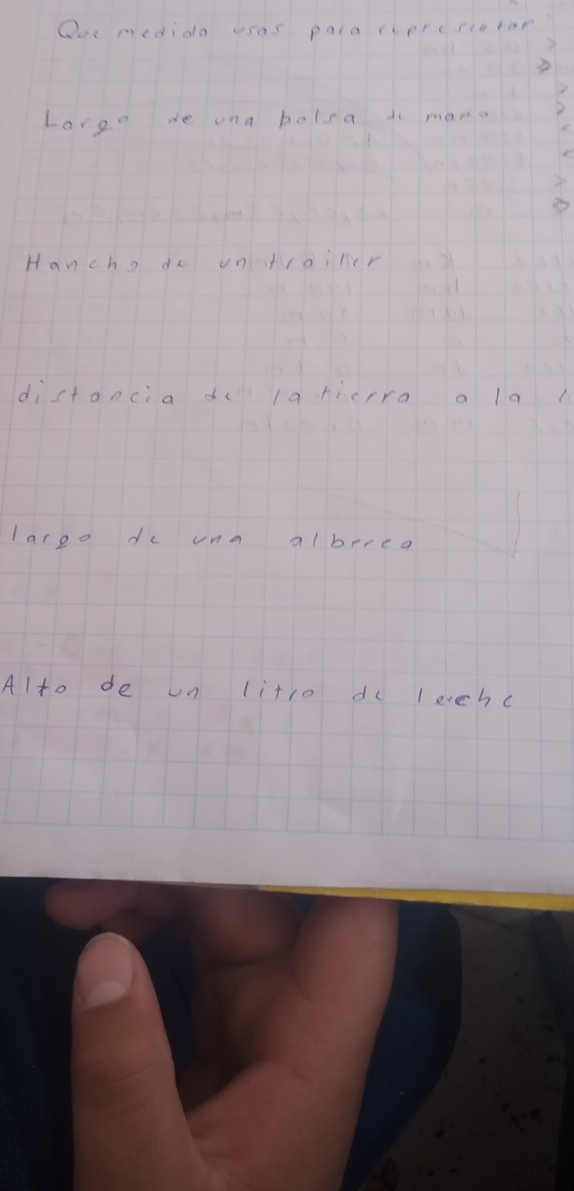 Que medida usas para representar
Largo de una bolsa de mano
Hancho de un trailer
distancia de la tierra a la l
largo de una alberca
Alto de un litro de leche